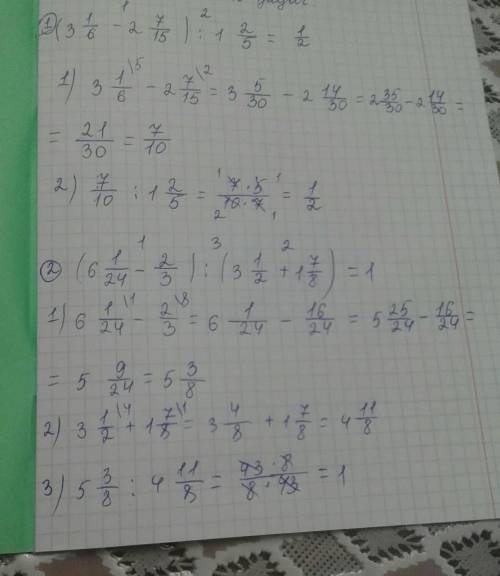 ① (3 1/6 - 2 7/15) : 1 2/5 = 1/2
1) 3 1/6 \5 - 2 7/15 \2 = 3 5/30 - 2 14/30 = 2 35/30 - 2 14/30 =
= 21/30 = 7/10
2) 7/10 : 1 2/5 = 7·5/10·7 = 1/2
② (6 1/24 - 2/3) : (3 1/2 + 1 7/8) = 1
1) 6 1/24 \1 - 2/3 \8 = 6 1/24 - 16/24 = 5 25/24 - 16/24 =
= 5 9/24 = 5 3/8
2) 3 1/2 \4 + 1 7/8 \1 = 3 4/8 + 1 7/8 = 4 11/8
3) 5 3/8 : 4 11/8 = 43·8/8·43 = 1